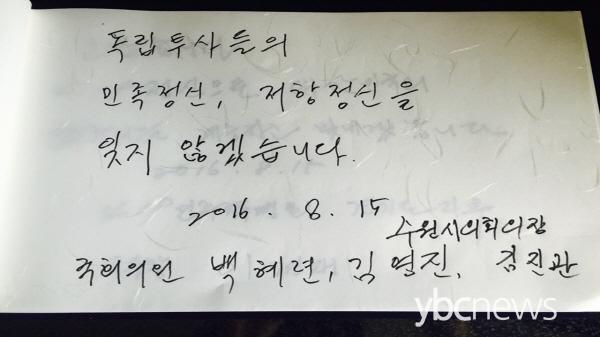 독립투사들의
민족정신, 저항정신을
잊지 않겠습니다.
2016. 8. 15
수원시의회의장
국회의원 백혜련, 김영진, 김진관
ybcnews